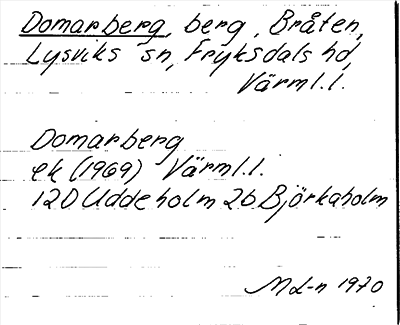 Domarberg, berg, Bråten,
Lysviks sn, Fryksdals hd,
Värml.l.
Domarberg
ek (1969) Värml.l.
12D Uddeholm 2b Björkaholm
ML-n 1970